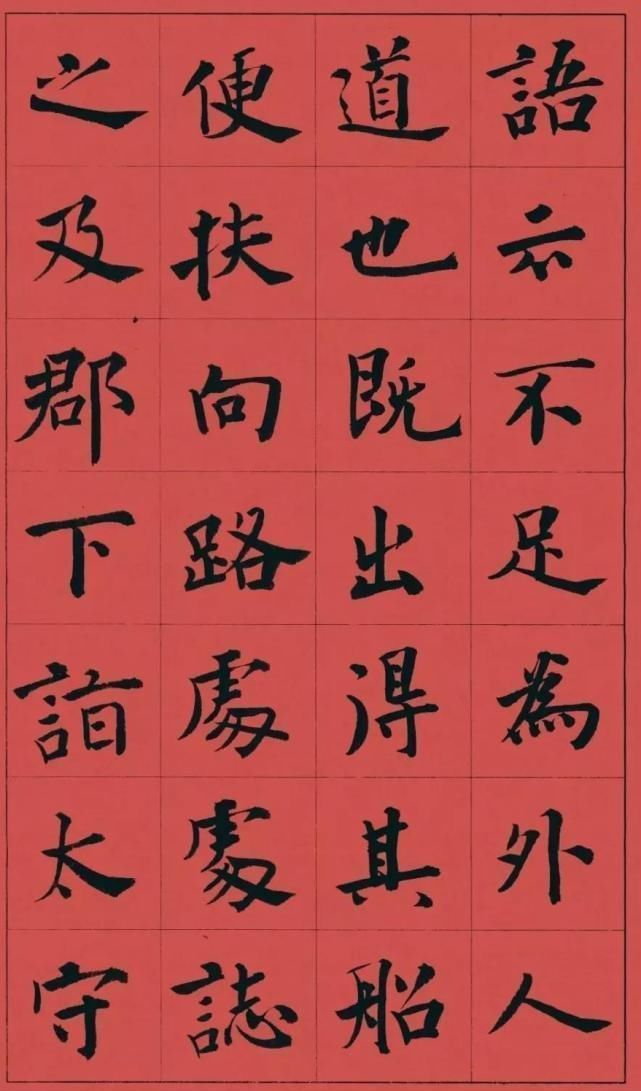 語云不足為外人
道也既出得其船
便扶向路處處誌
之及郡下詣太守